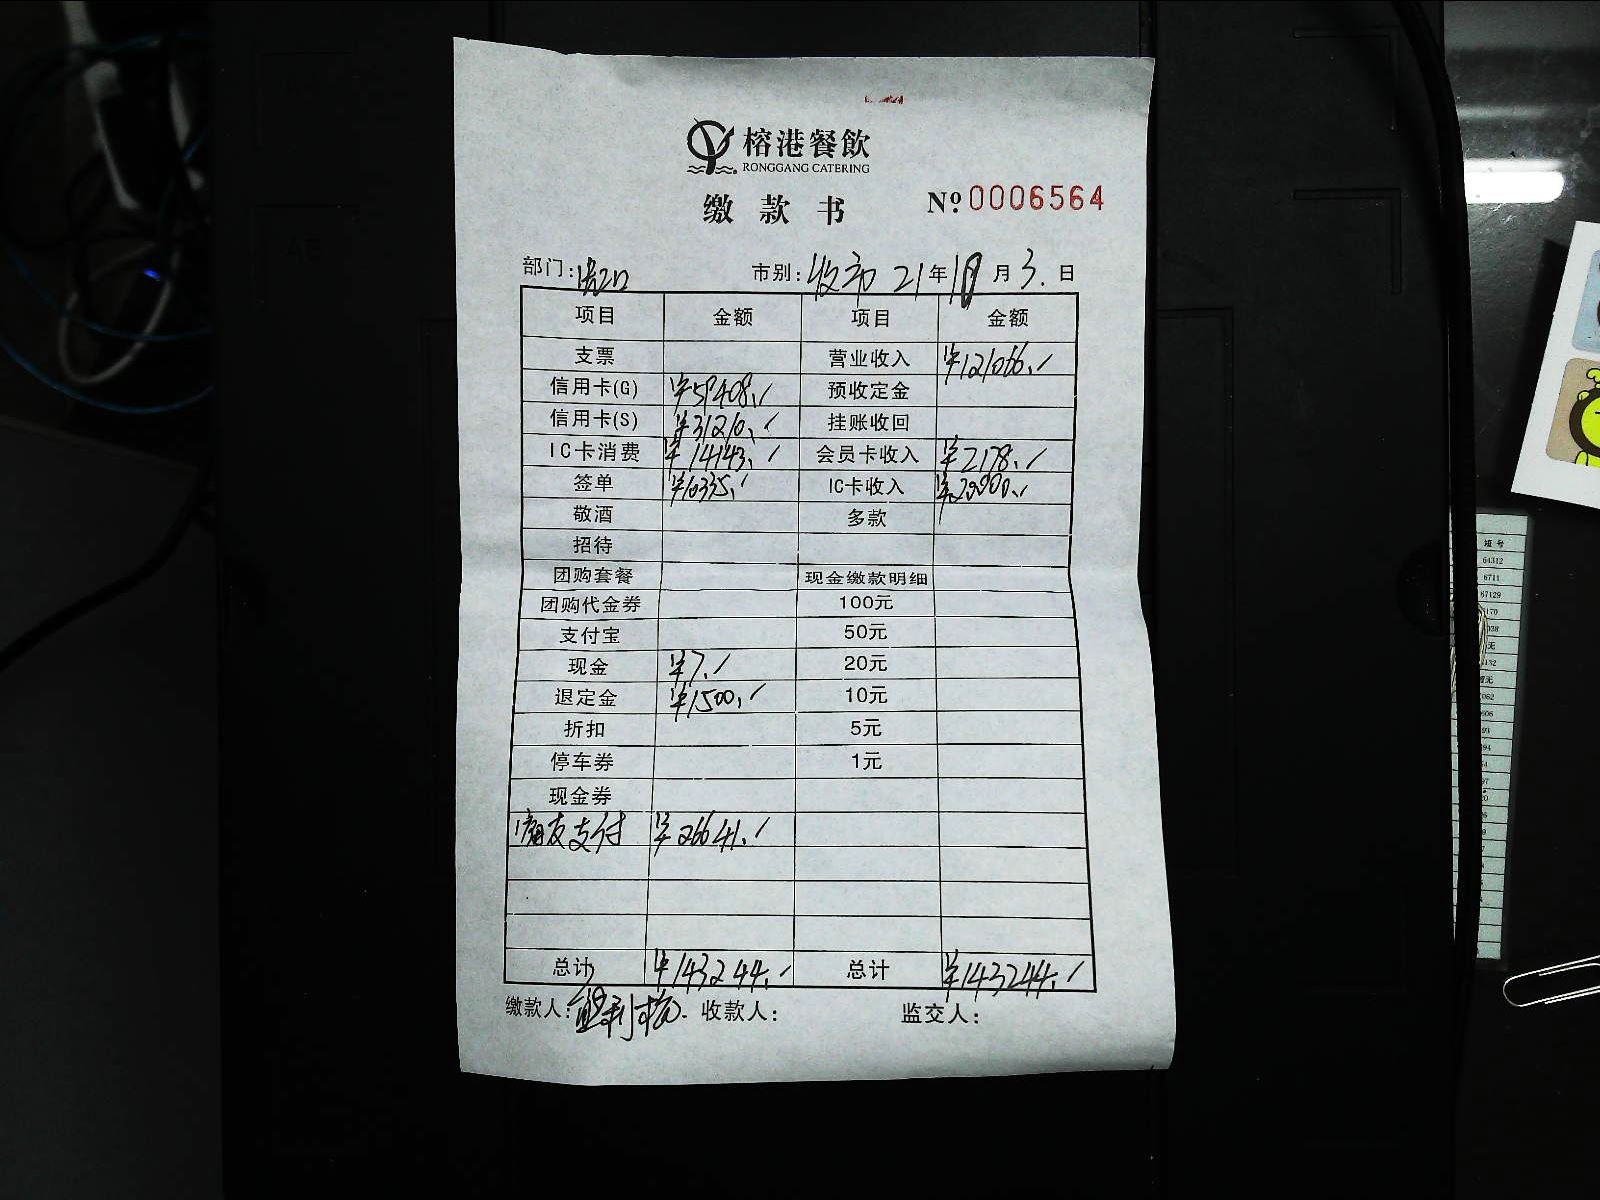 榕港餐飲
RONGGANG CATERING
缴款书 Nº 0006564
部门: 市别: 收市 21年10月3.日
项目 金额 项目 金额
支票 营业收入 ¥121066.
信用卡(G) ¥59408. 预收定金
信用卡(S) ¥31210. 挂账收回
IC卡消费 ¥14143. 会员卡收入 ¥2178.
签单 ¥10335. IC卡收入 ¥20000.
敬酒 多款
招待
团购套餐 现金缴款明细
团购代金券 100元
支付宝 50元
现金 ¥7. 20元
退定金 ¥1500. 10元
折扣 5元
停车券 1元
现金券
支付 ¥26641.
总计 ¥143244. 总计 ¥143244.
缴款人: 收款人: 监交人:
64312
6711
67129